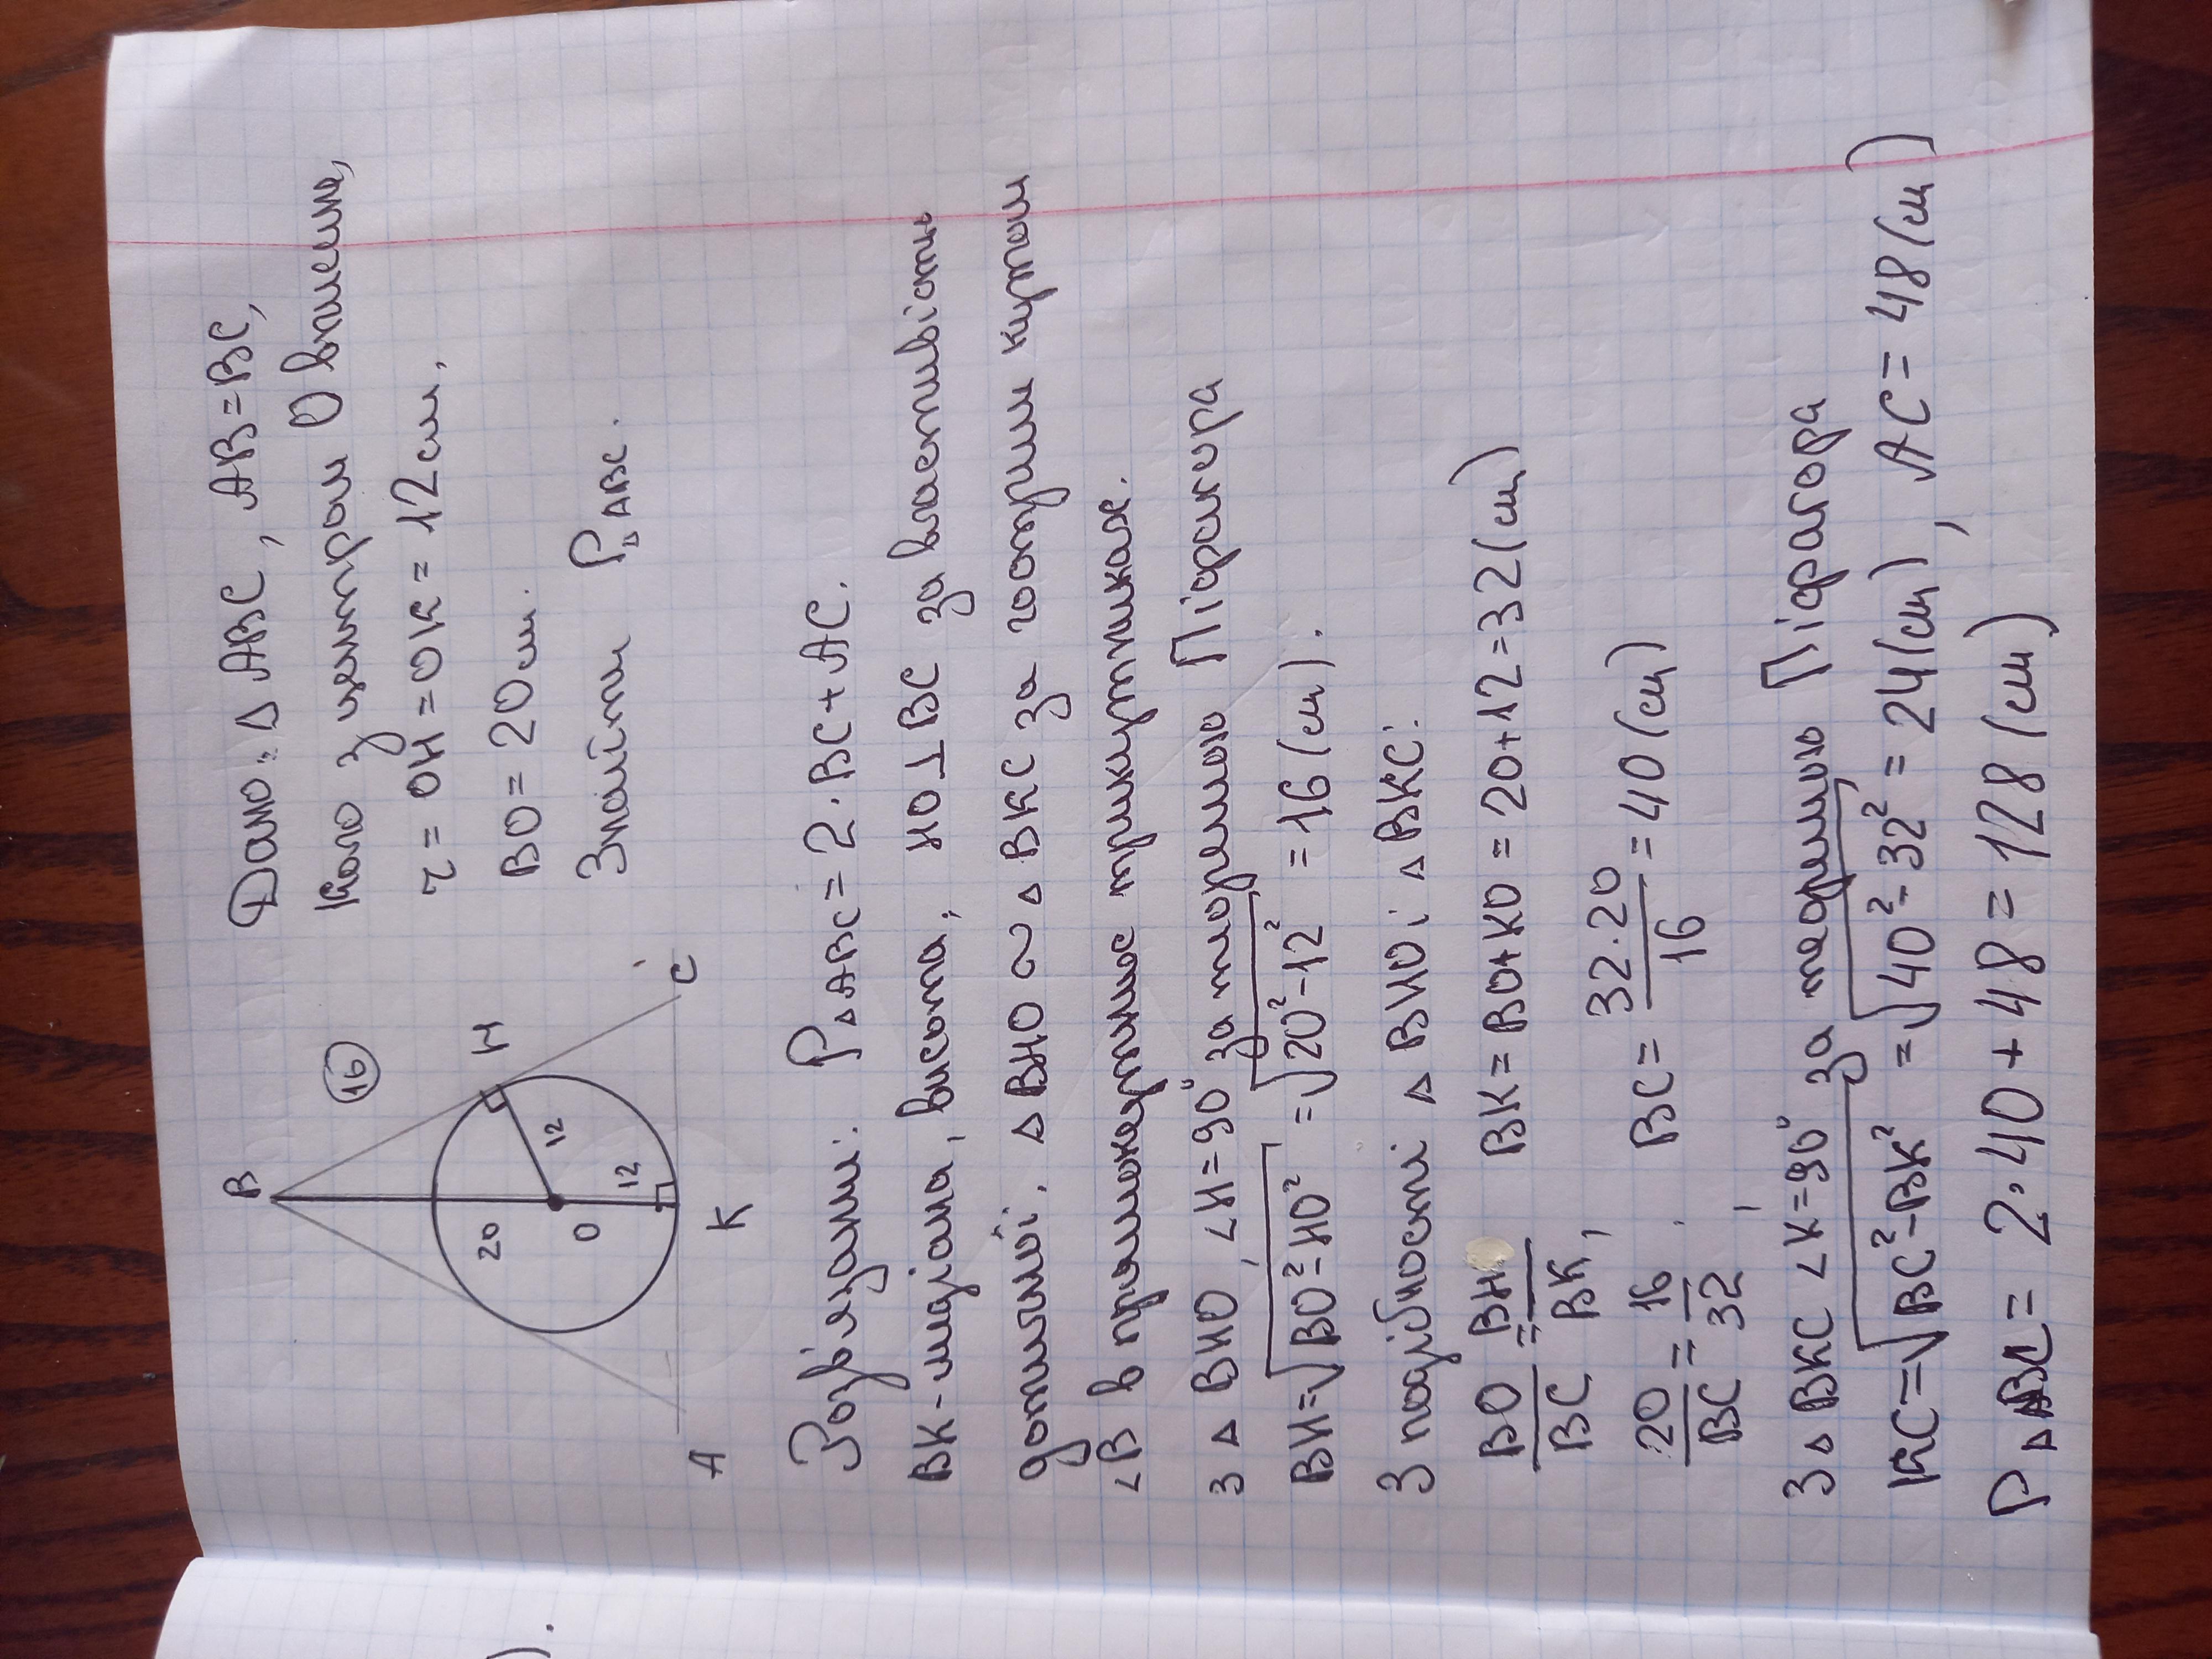 16
B
H
20
12
O
12
A
K
C
Дано: △ ABC, AB=BC,
коло з центром O вписане,
r = OH = OK = 12 см,
BO = 20 см.
Знайти P△ABC.
Розв'язання: P△ABC = 2·BC + AC.
BK - медіана, висота; HO ⊥ BC за властивістю
дотичної. △ BHO ∼ △ BKC за гострим кутом
∠B в прямокутнике трикутниках.
З △ BHO, ∠H=90° за теоремою Піфагора
BH = √BO²-HO² = √20²-12² = 16 (см).
З подібності △ BHO і △ BKC:
BO/BC = BH/BK, BK = BO+KO = 20+12 = 32 (см)
20/BC = 16/32; BC = 32·20/16 = 40 (см)
З △ BKC ∠K=90° за теоремою Піфагора
KC = √BC²-BK² = √40²-32² = 24 (см), AC = 48 (см)
P△ABC = 2·40 + 48 = 128 (см)
).